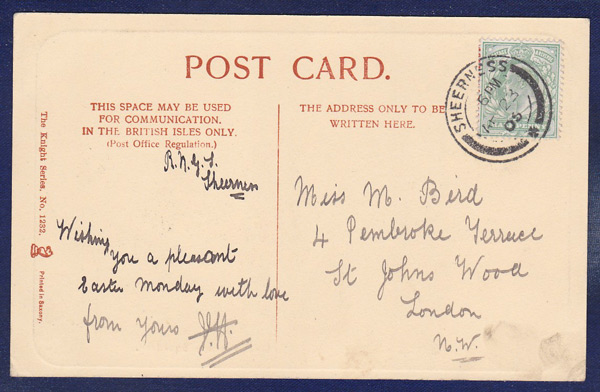 POST CARD.
THIS SPACE MAY BE USED
FOR COMMUNICATION.
IN THE BRITISH ISLES ONLY.
(Post Office Regulation.)
THE ADDRESS ONLY TO BE
WRITTEN HERE.
SHEERNESS
6 PM
The Knight Series. No. 1232.
Printed in Saxony.
Sheerness
Wishing
you a pleasant
Easter Monday with love
from yours
Miss M. Bird
4 Pembroke Terrace
St Johns Wood
London
N.W.